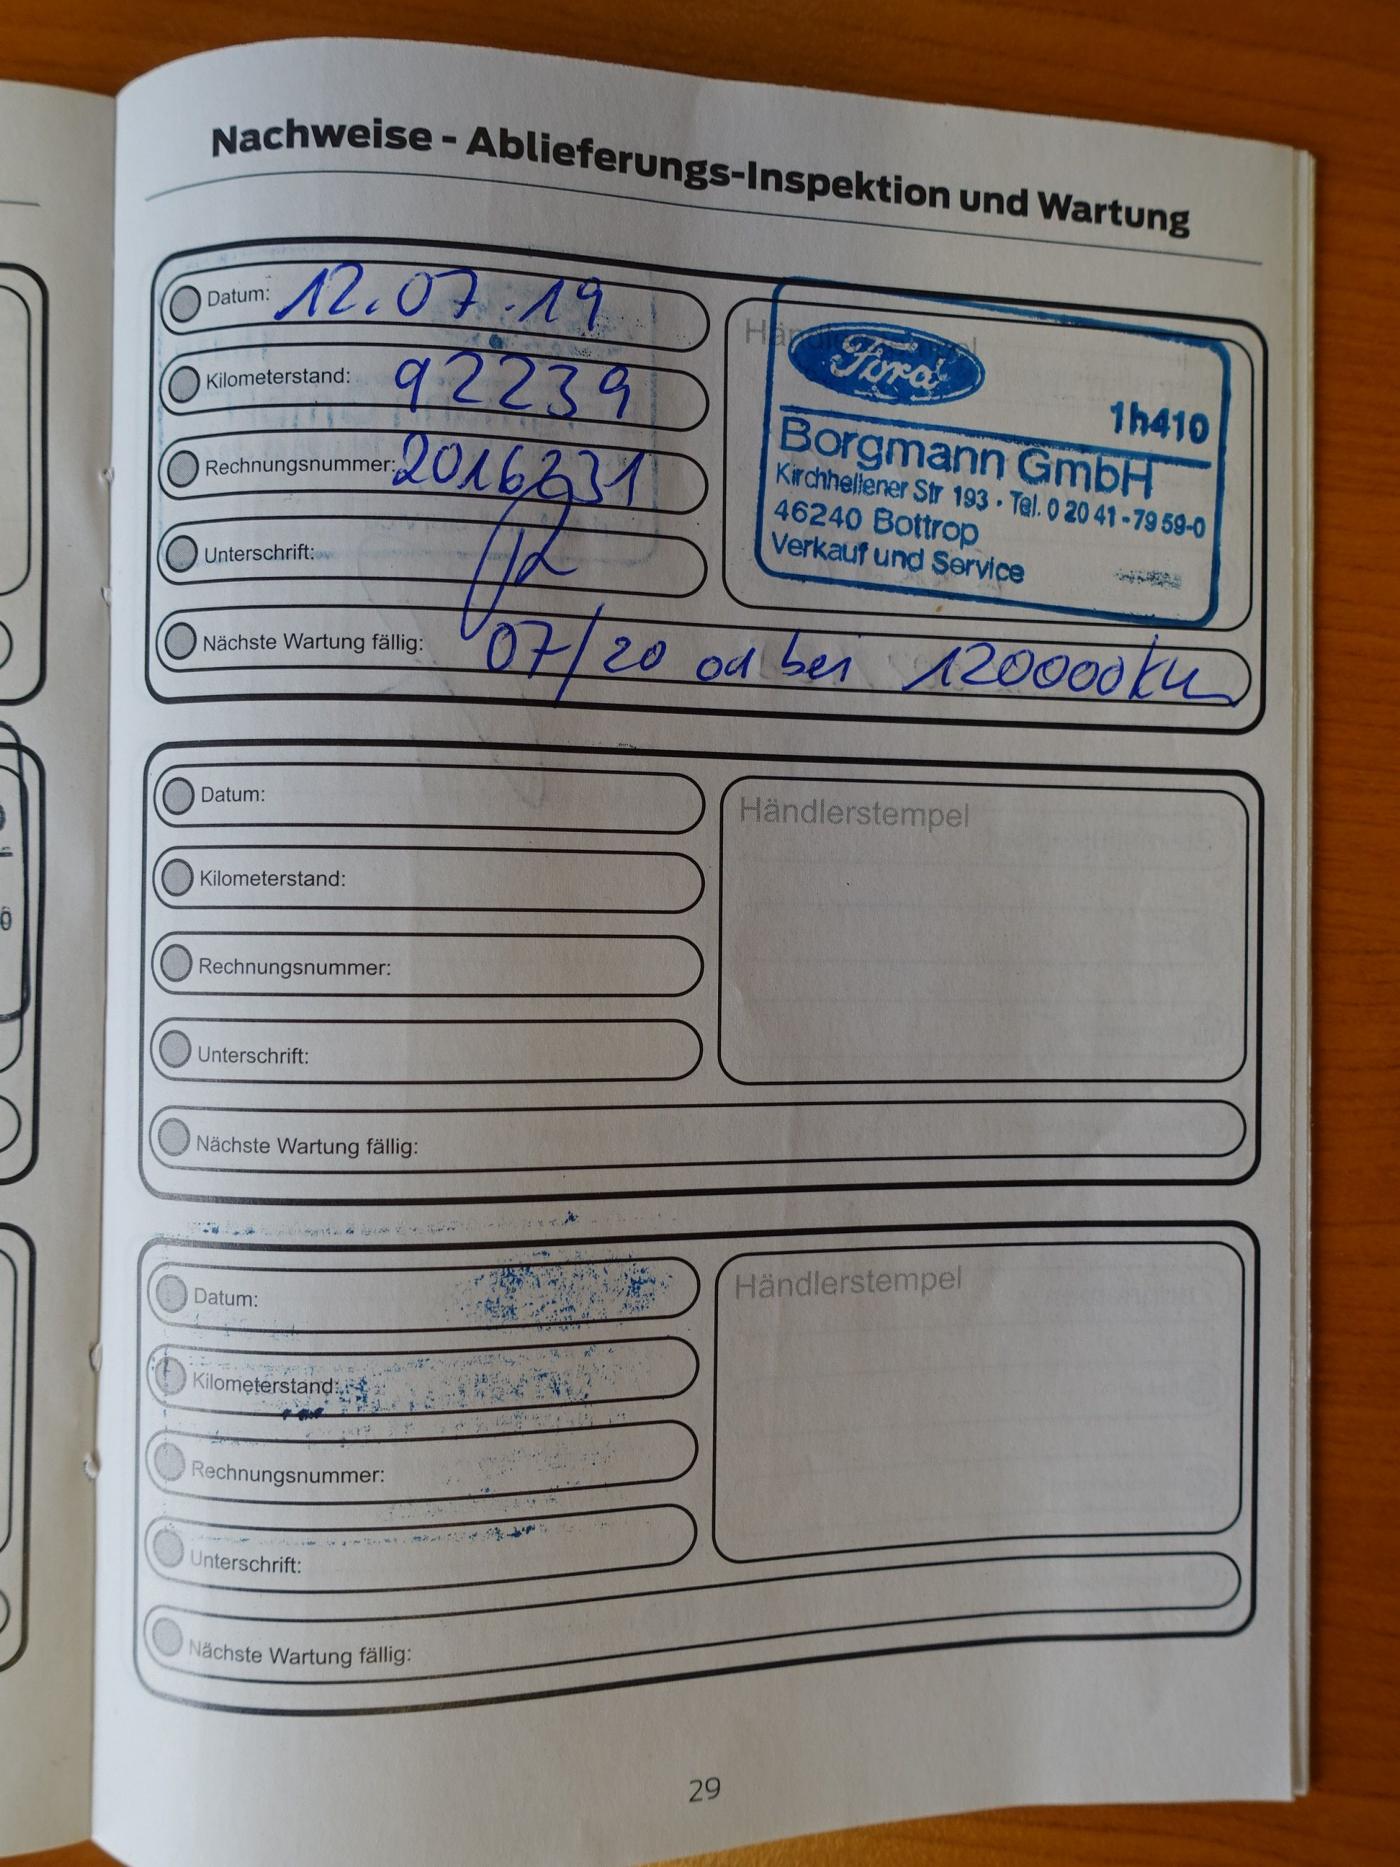 Nachweise - Ablieferungs-Inspektion und Wartung
Datum: 12.07.19
Kilometerstand: 92239
Rechnungsnummer: 2016331
Unterschrift:
Nächste Wartung fällig: 07/20 od bei 120000km
Händlerstempel
Ford
1h410
Borgmann GmbH
Kirchhellener Str 193 · Tel. 0 20 41 - 79 59-0
46240 Bottrop
Verkauf und Service
Datum:
Kilometerstand:
Rechnungsnummer:
Unterschrift:
Nächste Wartung fällig:
Händlerstempel
Datum:
Kilometerstand:
Rechnungsnummer:
Unterschrift:
Nächste Wartung fällig:
Händlerstempel
29